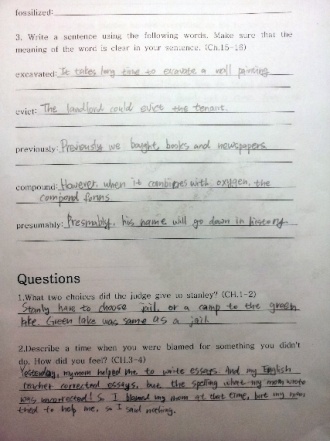 fossilized:
3. Write a sentence using the following words. Make sure that the
meaning of the word is clear in your sentence. (Ch.15-16)
excavated: It takes long time to excavate a wall painting
evict: The landlord could evict the tenant.
previously: Previously we bought, books and newspapers
compound: However, when it combines with oxygen, the
compound forms.
presumably: Presumbly, his name will go down in history
Questions
1.What two choices did the judge give to stanley? (CH.1-2)
Stanly have to choose jail, or a camp to the green
lake. Green lake was same as a jail.
2.Describe a time when you were blamed for something you didn't
do. How did you feel? (CH.3-4)
Yesterday, my mom helped me to write essays. And my English
teacher corrected essays, but the spelling what my mom wrote
was incorrected! So I blamed my mom at that time, but my mom
tried to help me, so I said nothing.